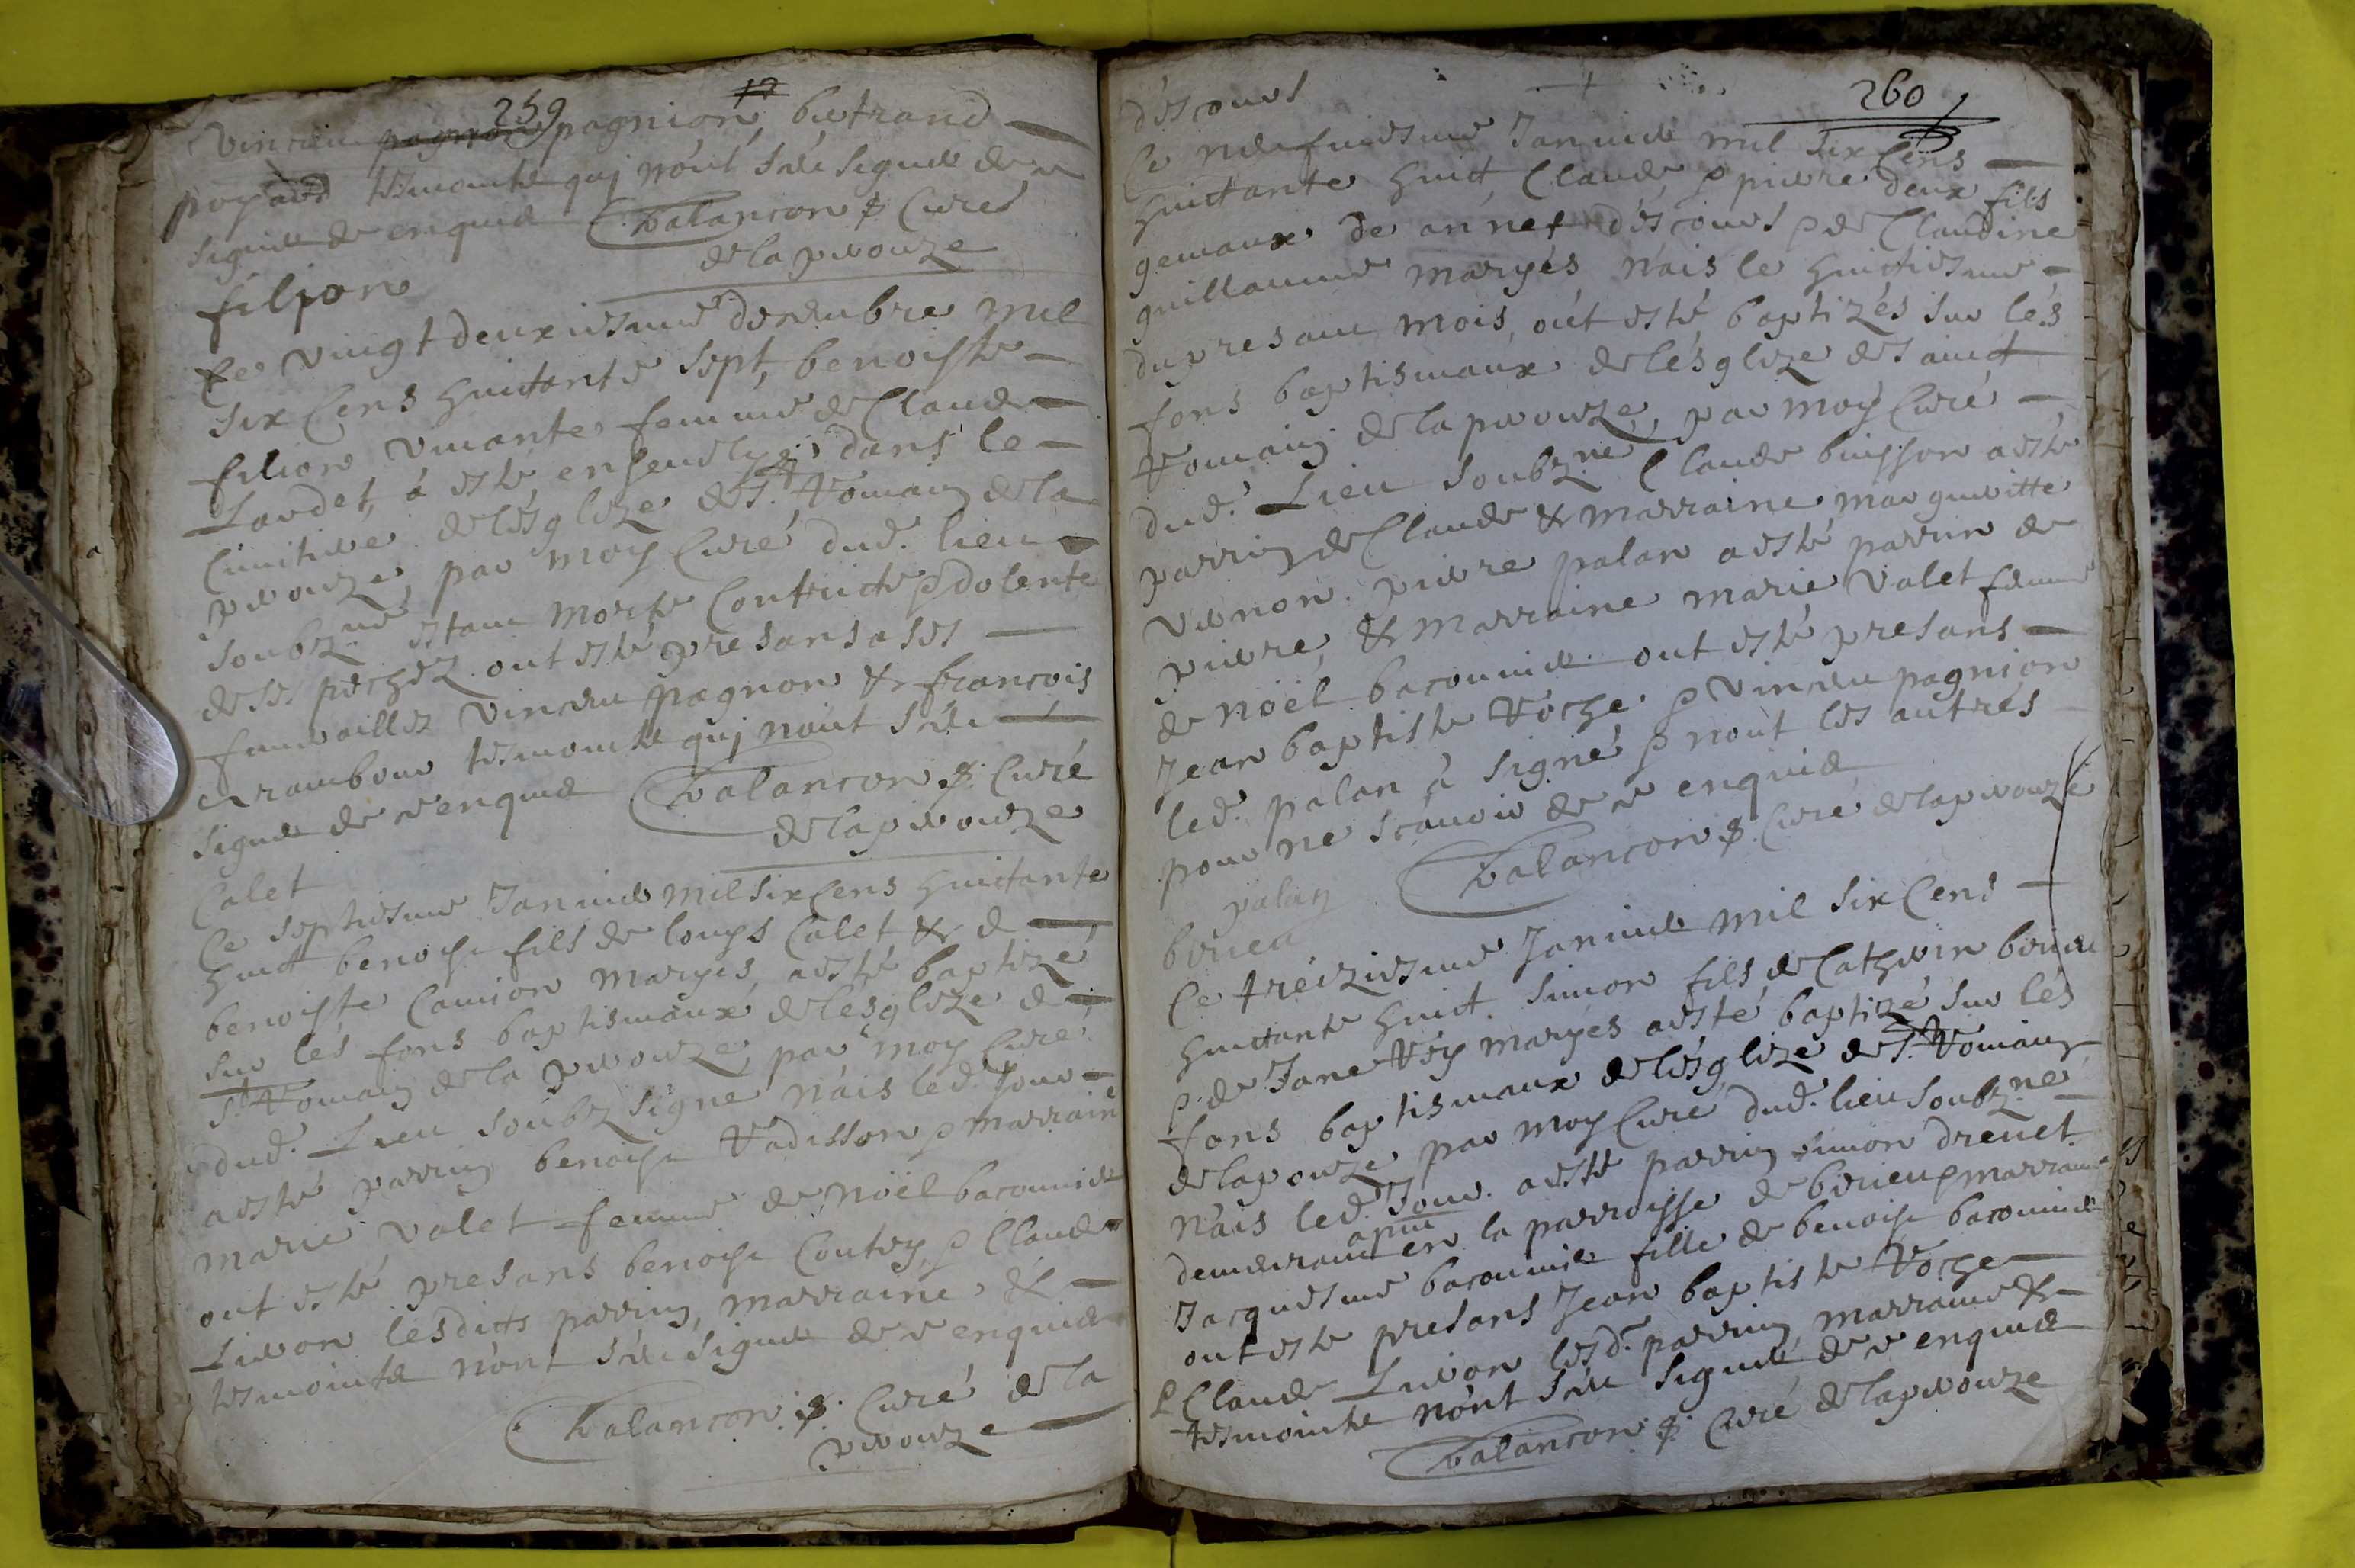 259 12
Vincen pagnon pagnion, bertrand
poyard tesmoints quj nont sceu signer de ce
signer de enquis Balancon p. Curés
de la perouze
filjon
Ce vingt deuxiesme decembre mil
six Cens huictante sept, benoiste
filion vivante femme de Claude
Lardet, á esté ensevelye dans le
Cimitiere de lésglize de St. Romain de la
perouze, par moy Curé dud. lieu
soubz.né estant morte Contricte & dolente
de ses péchéz ont esté presans a ses
funerailles Vincen pagnon & francois
errambour tesmoints quj nont sceu
signer de ce enquis Balancon p. Curé
de la perouze
Calet
Ce septiesme Janvier mil six Cens huictante
huict benoist fils de louys Calet & de
benoiste Camion maryés, a esté baptizé
sur lés fons baptismaux de lesglize de
St. Romain de la perouze, par moy Curé
dud. Lieu soubz signé nais led. Jour
a esté parrin benoist Radisson & marraine
marie valet femme de noël bacconnier
ont esté presans benoist Coutry, & Claude
Livon lesdicts parrin, marraine &
tesmoints nont sceu signer de ce enquis
Balancon p. Curé de la
perouze
260
déscours
Ce neufviesme Janvier mil six Cens
huictante huict, Claude & pierre deux fils
gemaux de annet déscours & de Claudine
guillaume maryés, nais le huictiesme
du presant mois, ont esté baptizés sur lés
fons baptismaux de lésglize de sainct
Romain de la perouze, par moy Curé
dud. Lieu soubz.né, Claude buisson a esté
parrin de Claude & marraine marguerite
vernon. pierre palan a esté parrin de
pierre, & marraine marie valet femme
de noël bacconnier. ont esté presans
Jean baptiste Roche. & Vincen pagnion
led. palan à signé & nont les autrés
pour ne scavoir de ce enquis
palan Balancon p. Curé de la perouze
birieu
Ce tréiziesme Janvier mil six Cens
huictante huict. simon fils de Catherin birieu
& de Jane Réy maryés a esté baptizé sur lés
fons baptismaux de lésglize de St. Romain
de la pouze par moy Curé dud. lieu soubz.né
nais led. Jour. a esté parrin simon drevet
demeurant en la parroisse de birieu & marraine
Jacquesme bacconnier fille de benoist bacconnier
ont esté presans Jean baptiste Roche
& Claude Livon lesd. parrin, marraine &
tesmoints nont sceu signer de ce enquis
Balancon p. Curé de la perouze